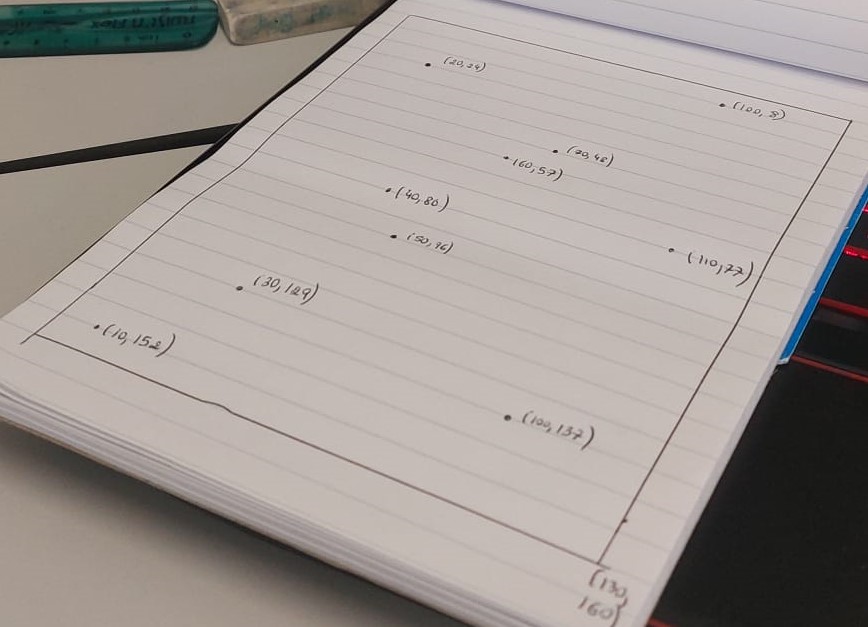 (20,24)
(100,8)
(70,48)
(60,57)
(40,80)
(50,96)
(110,77)
(30,129)
(10,152)
(100,137)
(130,
160)